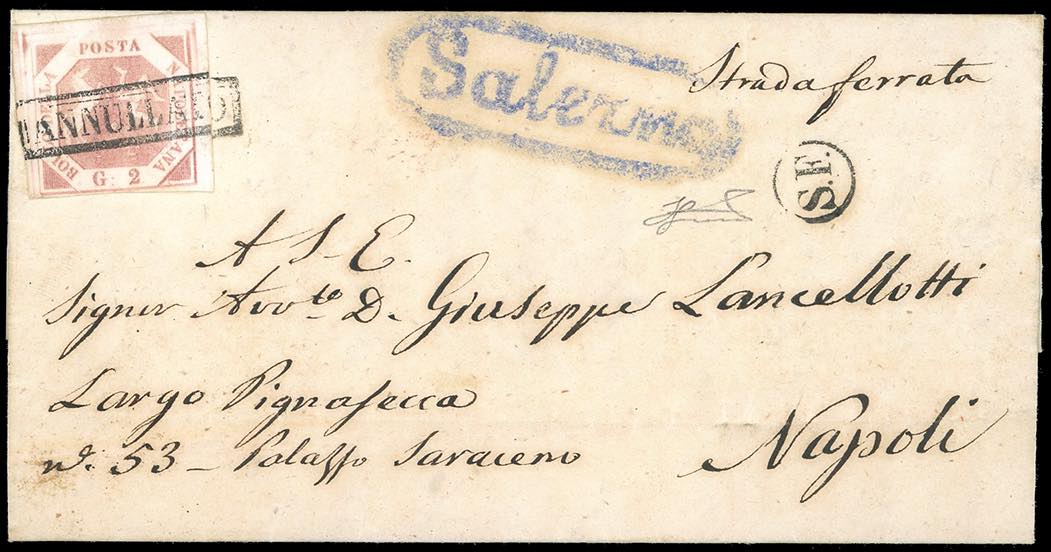 POSTA
NAPOLETANA
BOLLA
G. 2
ANNULLATO
Salerno
Strada ferrata
S.F.
A S. E.
Signor Avv.to D. Giuseppe Lancellotti
Largo Pignasecca
n.° 53 – Palazzo Saraceno
Napoli